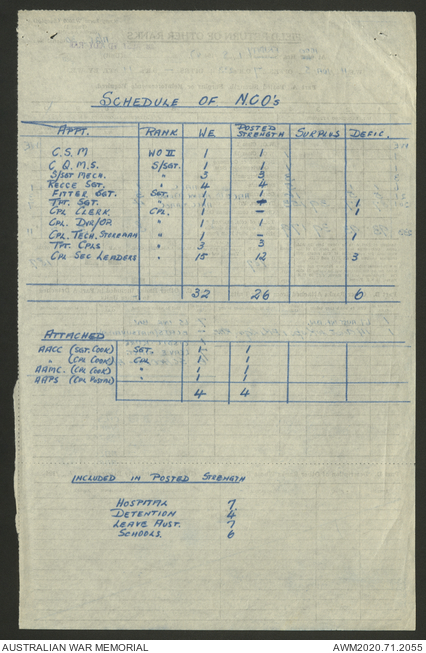 FIELD RETURN OF OTHER RANKS
SCHEDULE OF N.C.O's
APPT. RANK WE POSTED STRENGTH SURPLUS DEFIC.
C.S.M WO II 1 1
C.Q.M.S. S/SGT. 1 1
S/SGT MECH. " 3 3
RECCE SGT. " 4 4
FITTER SGT. SGT. 1 1
TPT. SGT. " 1 – 1
CPL CLERK. CPL. 1 – 1
CPL DVR/OP. " 1 1
CPL. TECH. STOREMAN " 1 – 1
TPT. CPLS " 3 3
CPL SEC LEADERS " 15 12 3
32 26 6
ATTACHED
AACC (SGT. COOK) SGT. 1 1
" (CPL COOK) CPL 1 1
AAMC. (CPL COOK) " 1 1
AAPS (CPL POSTAL) " 1 1
4 4
INCLUDED IN POSTED STRENGTH
HOSPITAL 7
DETENTION 4
LEAVE AUST. 7
SCHOOLS. 6
AUSTRALIAN WAR MEMORIAL AWM2020.71.2055